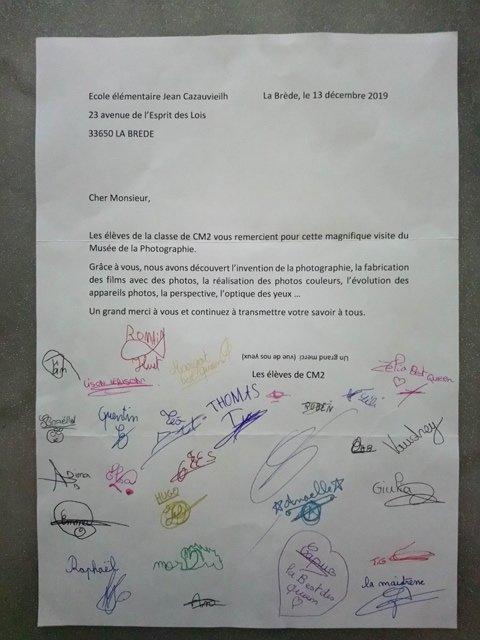 Ecole élémentaire Jean Cazauvieilh
La Brède, le 13 décembre 2019
23 avenue de l'Esprit des Lois
33650 LA BREDE
Cher Monsieur,
Les élèves de la classe de CM2 vous remercient pour cette magnifique visite du
Musée de la Photographie.
Grâce à vous, nous avons découvert l'invention de la photographie, la fabrication
des films avec des photos, la réalisation des photos couleurs, l'évolution des
appareils photos, la perspective, l'optique des yeux ...
Un grand merci à vous et continuez à transmettre votre savoir à tous.
Un grand merci (vue de nos yeux)
Les élèves de CM2
Romain
Quentin
Léo
THOMAS
RUBEN
Vaudrey
HUGO
Anaelle
Giulia
Emma
Raphaël
Capua
la Best des
queen
T.G
la maitresse